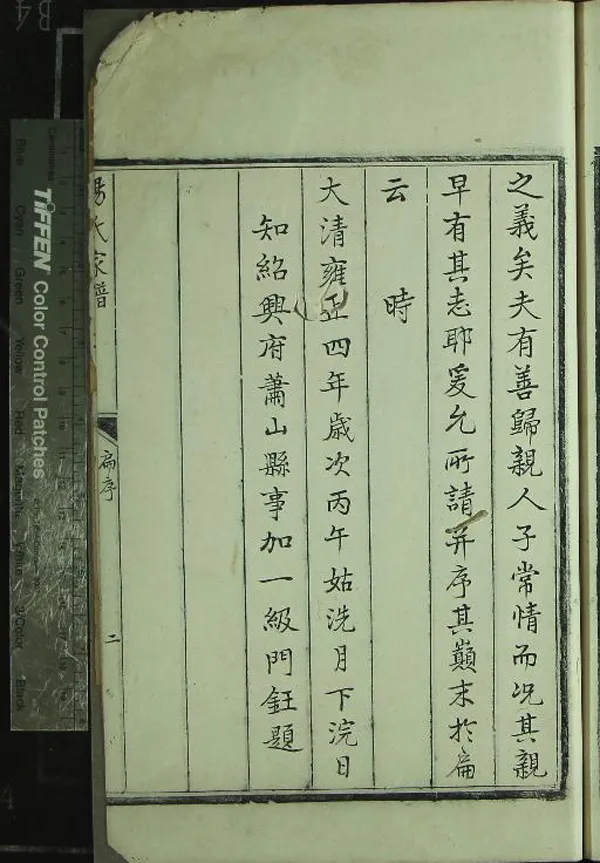 之義矣夫有善歸親人子常情而况其親
早有其志耶爰允所請并序其巔末於扁
云 時
大清雍正四年歲次丙午姑洗月下浣日
知紹興府蕭山縣事加一級門鈺題
氏家譜
扁序
二
TIFFEN Color Control Patches
Blue
Cyan
Green
Yellow
Red
Magenta
3/Color
Black
B4
4